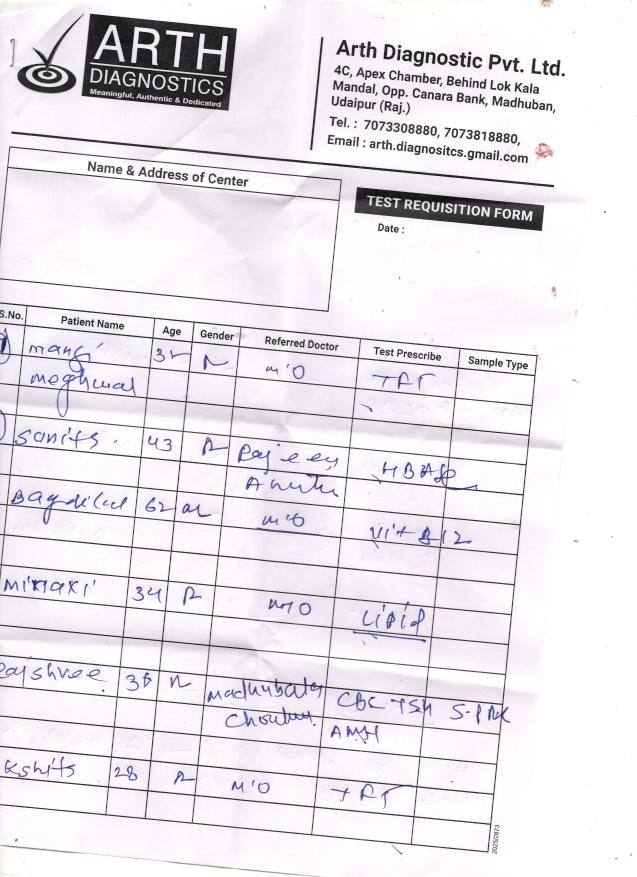 ARTH
DIAGNOSTICS
Meaningful, Authentic & Dedicated
Arth Diagnostic Pvt. Ltd.
4C, Apex Chamber, Behind Lok Kala
Mandal, Opp. Canara Bank, Madhuban,
Udaipur (Raj.)
Tel. : 7073308880, 7073818880,
Email : arth.diagnositcs.gmail.com
Name & Address of Center
TEST REQUISITION FORM
Date :
S.No. Patient Name Age Gender Referred Doctor Test Prescribe Sample Type
mangi M'O TFT
meghwal
43 Rajeev
62 M'O Vit B12
Minaxi 34 M'O Lipid
Rajshree Madhubala CBC TSH
Choubey AMH
28 M'O TFT
2025/2873